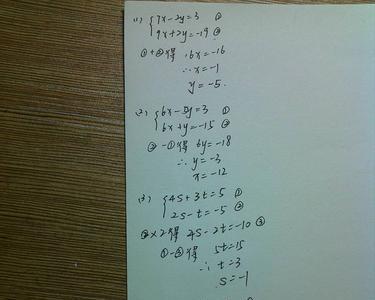 (1) { 7x-2y=3 ①
9x+2y=-19 ②
①+②得 16x=-16
∴x=-1
y=-5.
(2) { 6x-5y=3 ①
6x+y=-15 ②
②-①得 6y=-18
∴ y=-3
x=-12
(3) { 4s+3t=5 ①
2s-t=-5 ②
②×2得 4s-2t=-10 ③
①-③得 5t=15
∴ t=3
s=-1